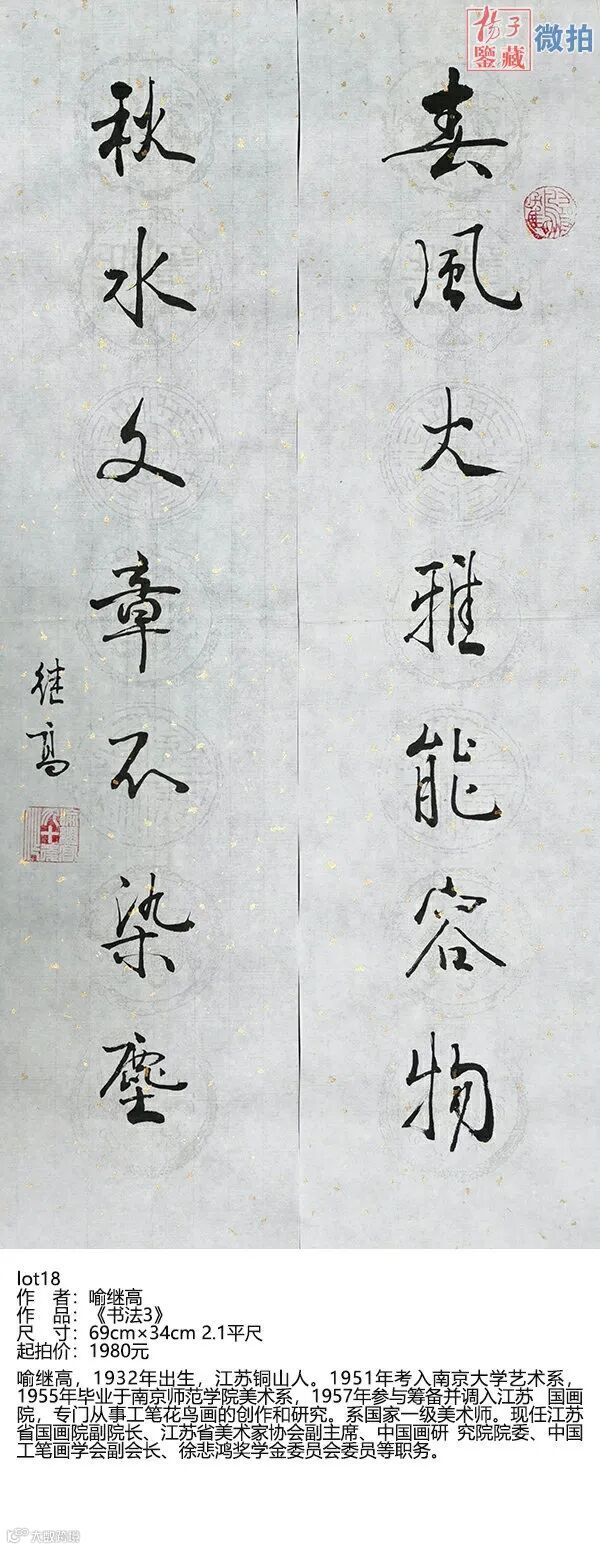 杨子
鉴藏
微拍
春風大雅能容物
秋水文章不染塵
继高
lot18
作 者：喻继高
作 品：《书法3》
尺 寸：69cm×34cm 2.1平尺
起拍价：1980元
喻继高，1932年出生，江苏铜山人。1951年考入南京大学艺术系，
1955年毕业于南京师范学院美术系，1957年参与筹备并调入江苏 国画
院，专门从事工笔花鸟画的创作和研究。系国家一级美术师。现任江苏
省国画院副院长、江苏省美术家协会副主席、中国画研 究院院委、中国
工笔画学会副会长、徐悲鸿奖学金委员会委员等职务。